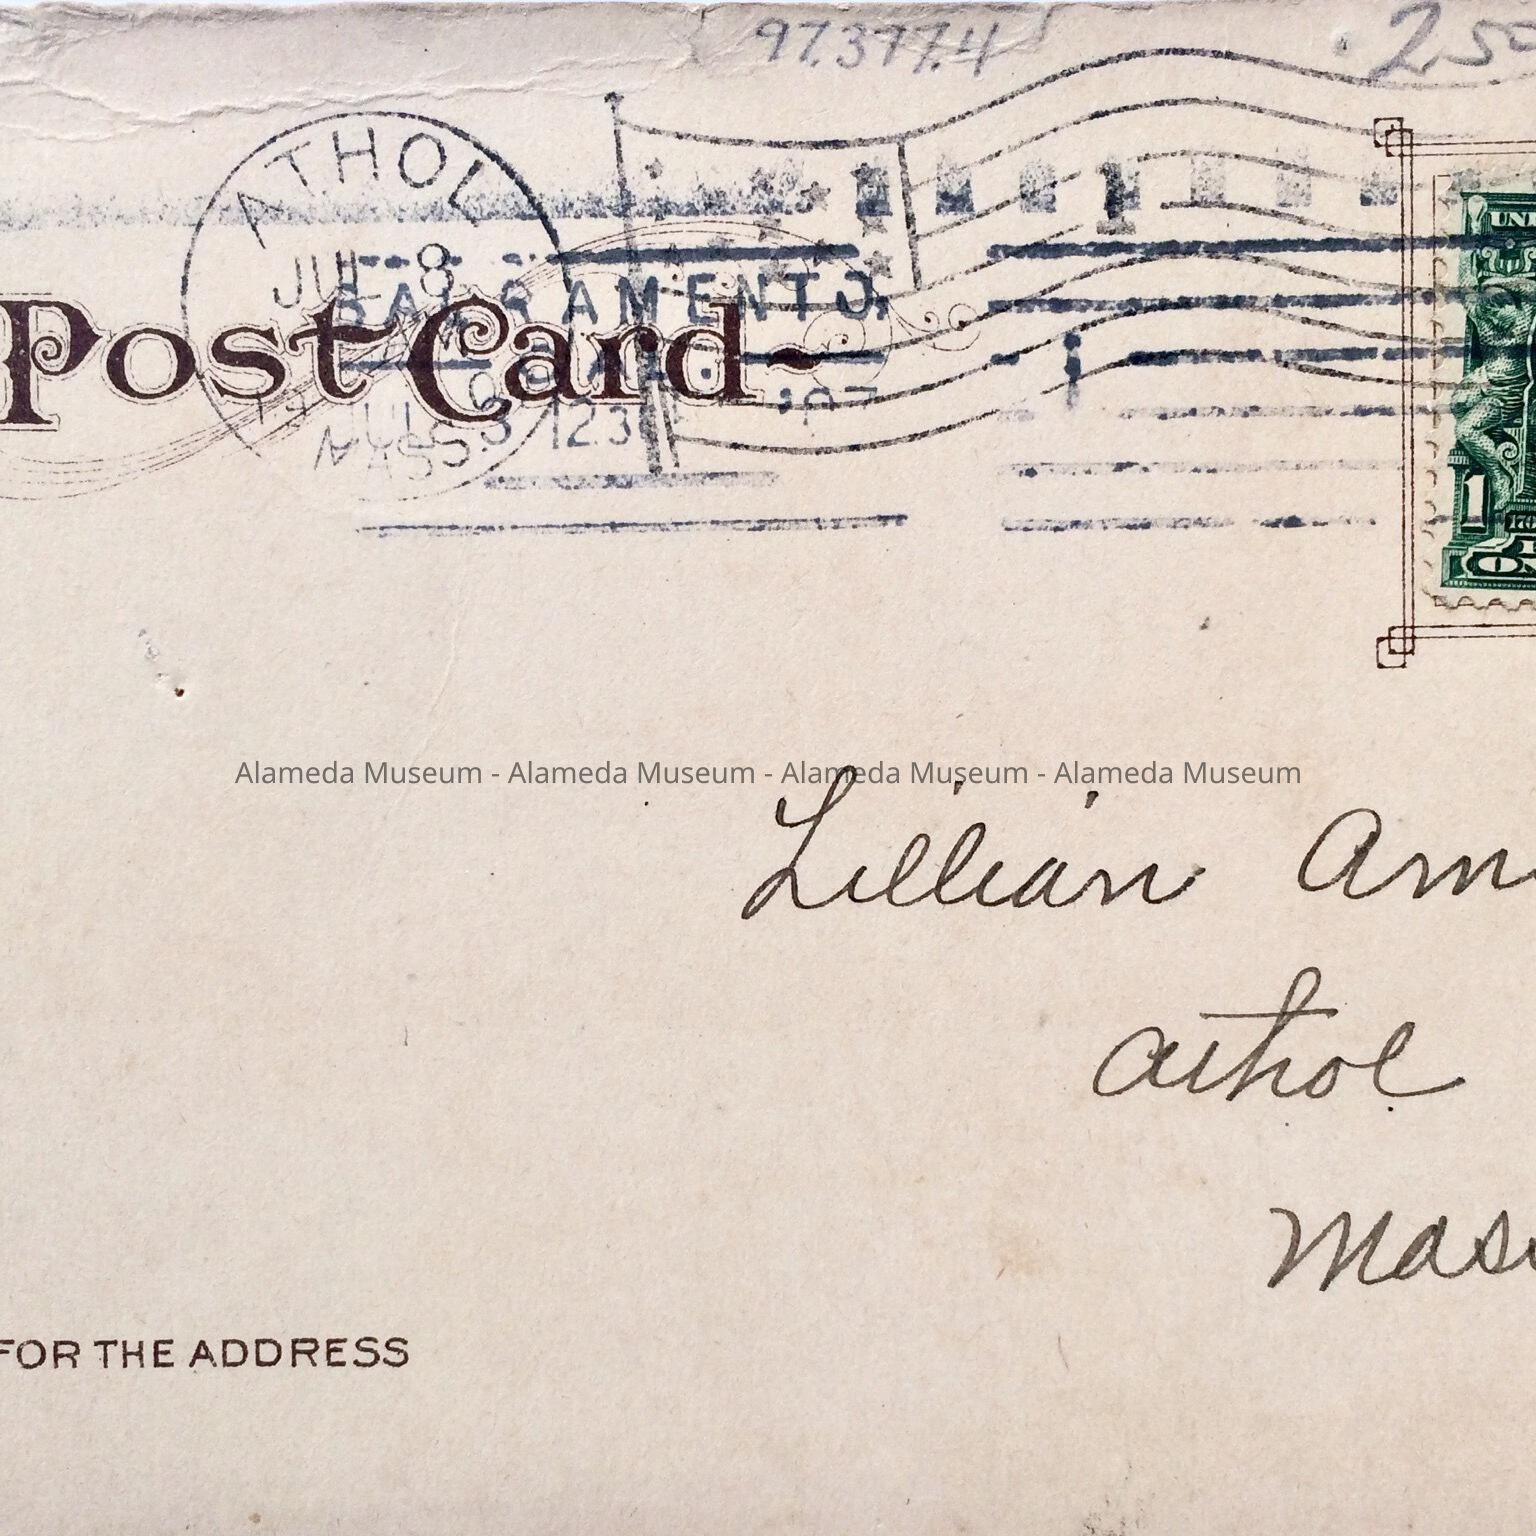 97.377.4
2.50
ATHOL
JUL 8
SACRAMENTO,
JUL 3 12 30
'07
MASS.
Post Card
UNI
1
Alameda Museum - Alameda Museum - Alameda Museum - Alameda Museum
Lillian Am
Athol
Mass
FOR THE ADDRESS